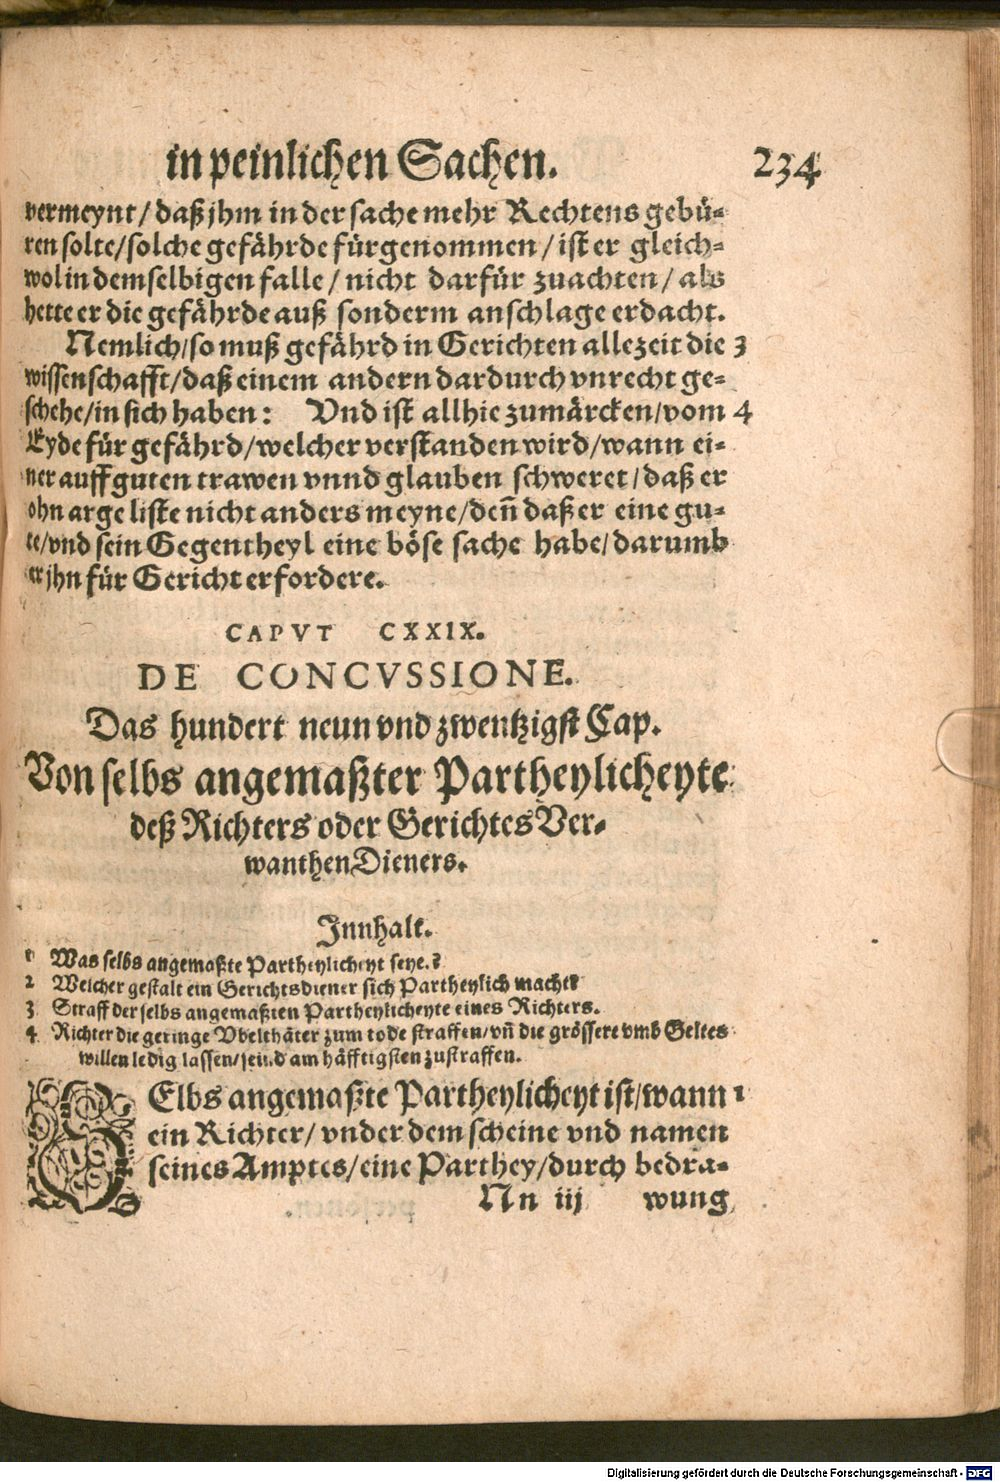 in peinlichen Sachen. 234
vermeynt / daß jhm in der sache mehr Rechtens gebü-
ren solte / solche gefährde fürgenommen / ist er gleich-
wol in demselbigen falle / nicht darfür zuachten / als
hette er die gefährde auß sonderm anschlage erdacht.
Nemlich / so muß gefährd in Gerichten allezeit die 3
wissenschafft / daß einem andern dardurch vnrecht ge-
schehe / in sich haben: Vnd ist allhie zumärcken / vom 4
Eyde für gefährd / welcher verstanden wird / wann ei-
ner auff guten trawen vnnd glauben schweret / daß er
ohn arge liste nicht anders meyne / deñ daß er eine gu-
te / vnd sein Gegentheyl eine böse sache habe / darumb
er jhn für Gericht erfordere.
CAPVT CXXIX.
DE CONCVSSIONE.
Das hundert neun vnd zwentzigst Cap.
Von selbs angemaßter Partheylicheyte
deß Richters oder Gerichtes Ver-
wanthen Dieners.
Innhalt.
1 Was selbs angemaßte Partheylicheyt seye.?
2 Welcher gestalt ein Gerichtsdiener sich Partheylich macht?
3 Straff der selbs angemaßten Partheylicheyte eines Richters.
4 Richter die geringe Vbelthäter zum tode straffen / vñ die grössere vmb Geltes
willen ledig lassen / seind am häfftigsten zustraffen.
SElbs angemaßte Partheylicheyt ist / wann 1
ein Richter / vnder dem scheine vnd namen
seines Amptes / eine Parthey / durch bedra-
Nn iij wung
Digitalisierung gefördert durch die Deutsche Forschungsgemeinschaft - DFG